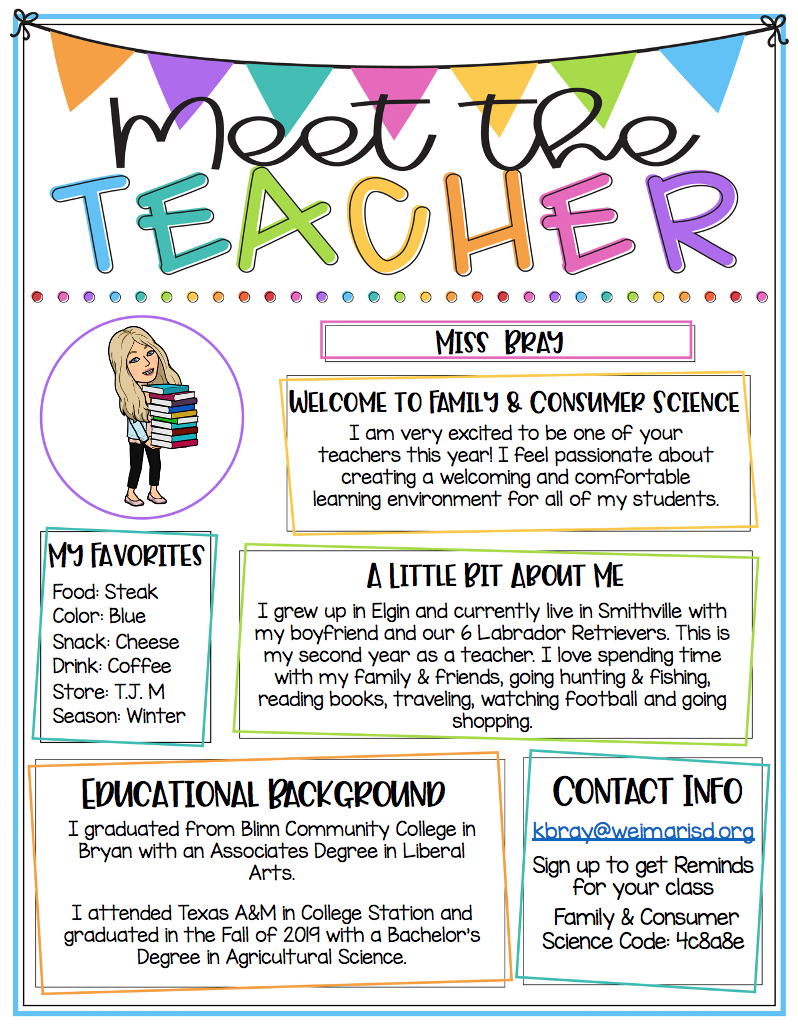 Meet the
TEACHER
MISS BRAY
WELCOME TO FAMILY & CONSUMER SCIENCE
I am very excited to be one of your
teachers this year! I feel passionate about
creating a welcoming and comfortable
learning environment for all of my students.
MY FAVORITES
Food: Steak
Color: Blue
Snack: Cheese
Drink: Coffee
Store: T.J. M
Season: Winter
A LITTLE BIT ABOUT ME
I grew up in Elgin and currently live in Smithville with
my boyfriend and our 6 Labrador Retrievers. This is
my second year as a teacher. I love spending time
with my family & friends, going hunting & fishing,
reading books, traveling, watching football and going
shopping.
EDUCATIONAL BACKGROUND
I graduated from Blinn Community College in
Bryan with an Associates Degree in Liberal
Arts.
I attended Texas A&M in College Station and
graduated in the Fall of 2019 with a Bachelor's
Degree in Agricultural Science.
CONTACT INFO
kbray@weimarisd.org
Sign up to get Reminds
for your class
Family & Consumer
Science Code: 4c8a8e